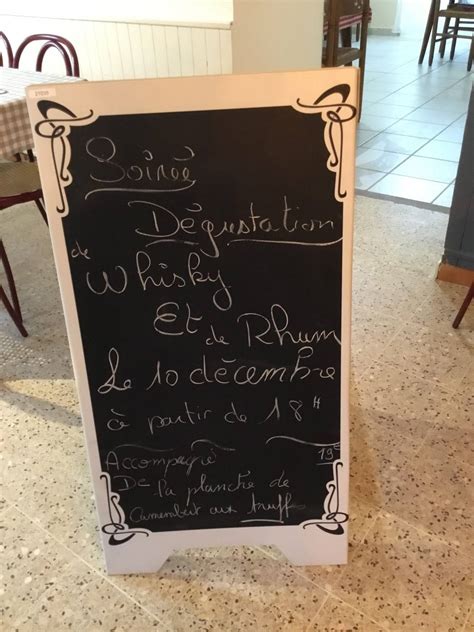 Soirée
Dégustation
de Whisky
Et de Rhum
Le 10 décembre
à partir de 18H
Accompagné 19€
De la planche de
Camembert aux truff